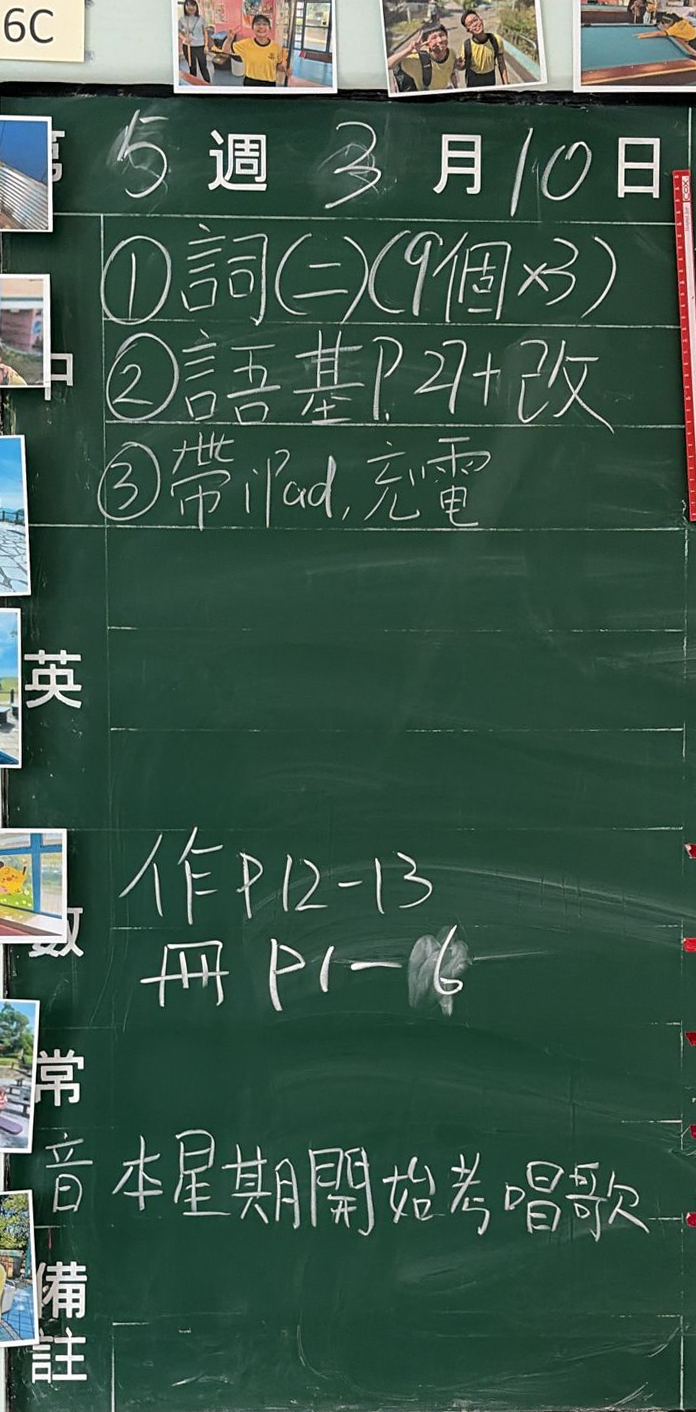 6C
第 5 週 3 月 10 日
中
①詞(二)(9個×3)
②語基P.27+改
③帶iPad,充電
英
數
作P12-13
冊 P1-6
常
音 本星期開始考唱歌
備註